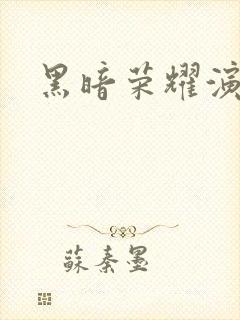 黑暗荣耀演
蘇秦墨